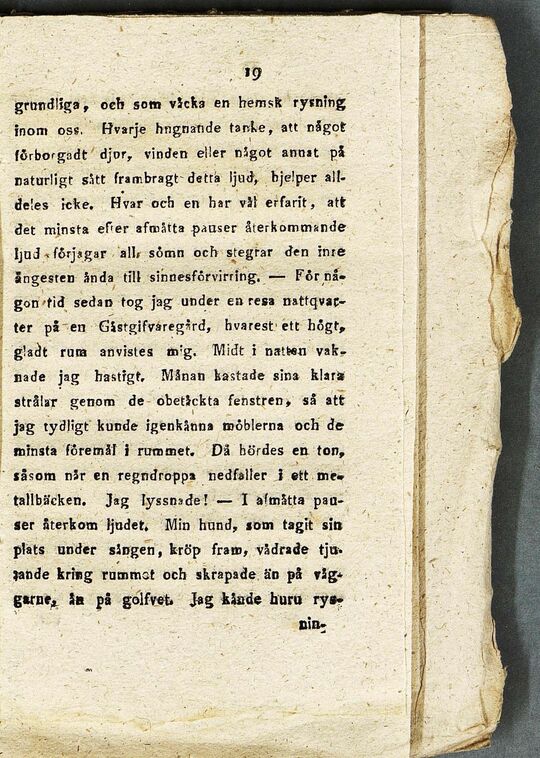 19
grundliga, och som våcka en hemsk rysning
inom oss. Hvarje lugnande tanke, att något
fôrborgadt djur, vinden eller något annat på
naturligt sått frambragt detta ljud, hjelper all-
deles icke. Hvar och en har vål erfarit, att
det minsta efter afmåtta pauser återkommande
ljud fôrjagar all sômn och stegrar den inre
ångesten ånda till sinnesfôrvirring. — Fôr nå-
gon tid sedan tog jag under en resa nattqvar-
ter på en Gåstgifvaregård, hvarest ett hôgt,
gladt rum anvistes mig. Midt i natten vak-
nade jag hastigt. Månan kastade sina klara
strålar genom de obetåckta fenstren, så att
jag tydligt kunde igenkånna môblerna och de
minsta fôremål i rummet. Då hôrdes en ton,
såsom når en regndroppa nedfaller i ett me-
tallbåcken. Jag lyssnade! — I afmåtta pau-
ser återkom ljudet. Min hund, som tagit sin
plats under sången, krôp fram, vådrade tju-
tande kring rummet och skrapade ån på våg-
garne, ån på golfvet. Jag kånde huru rys-
nin-